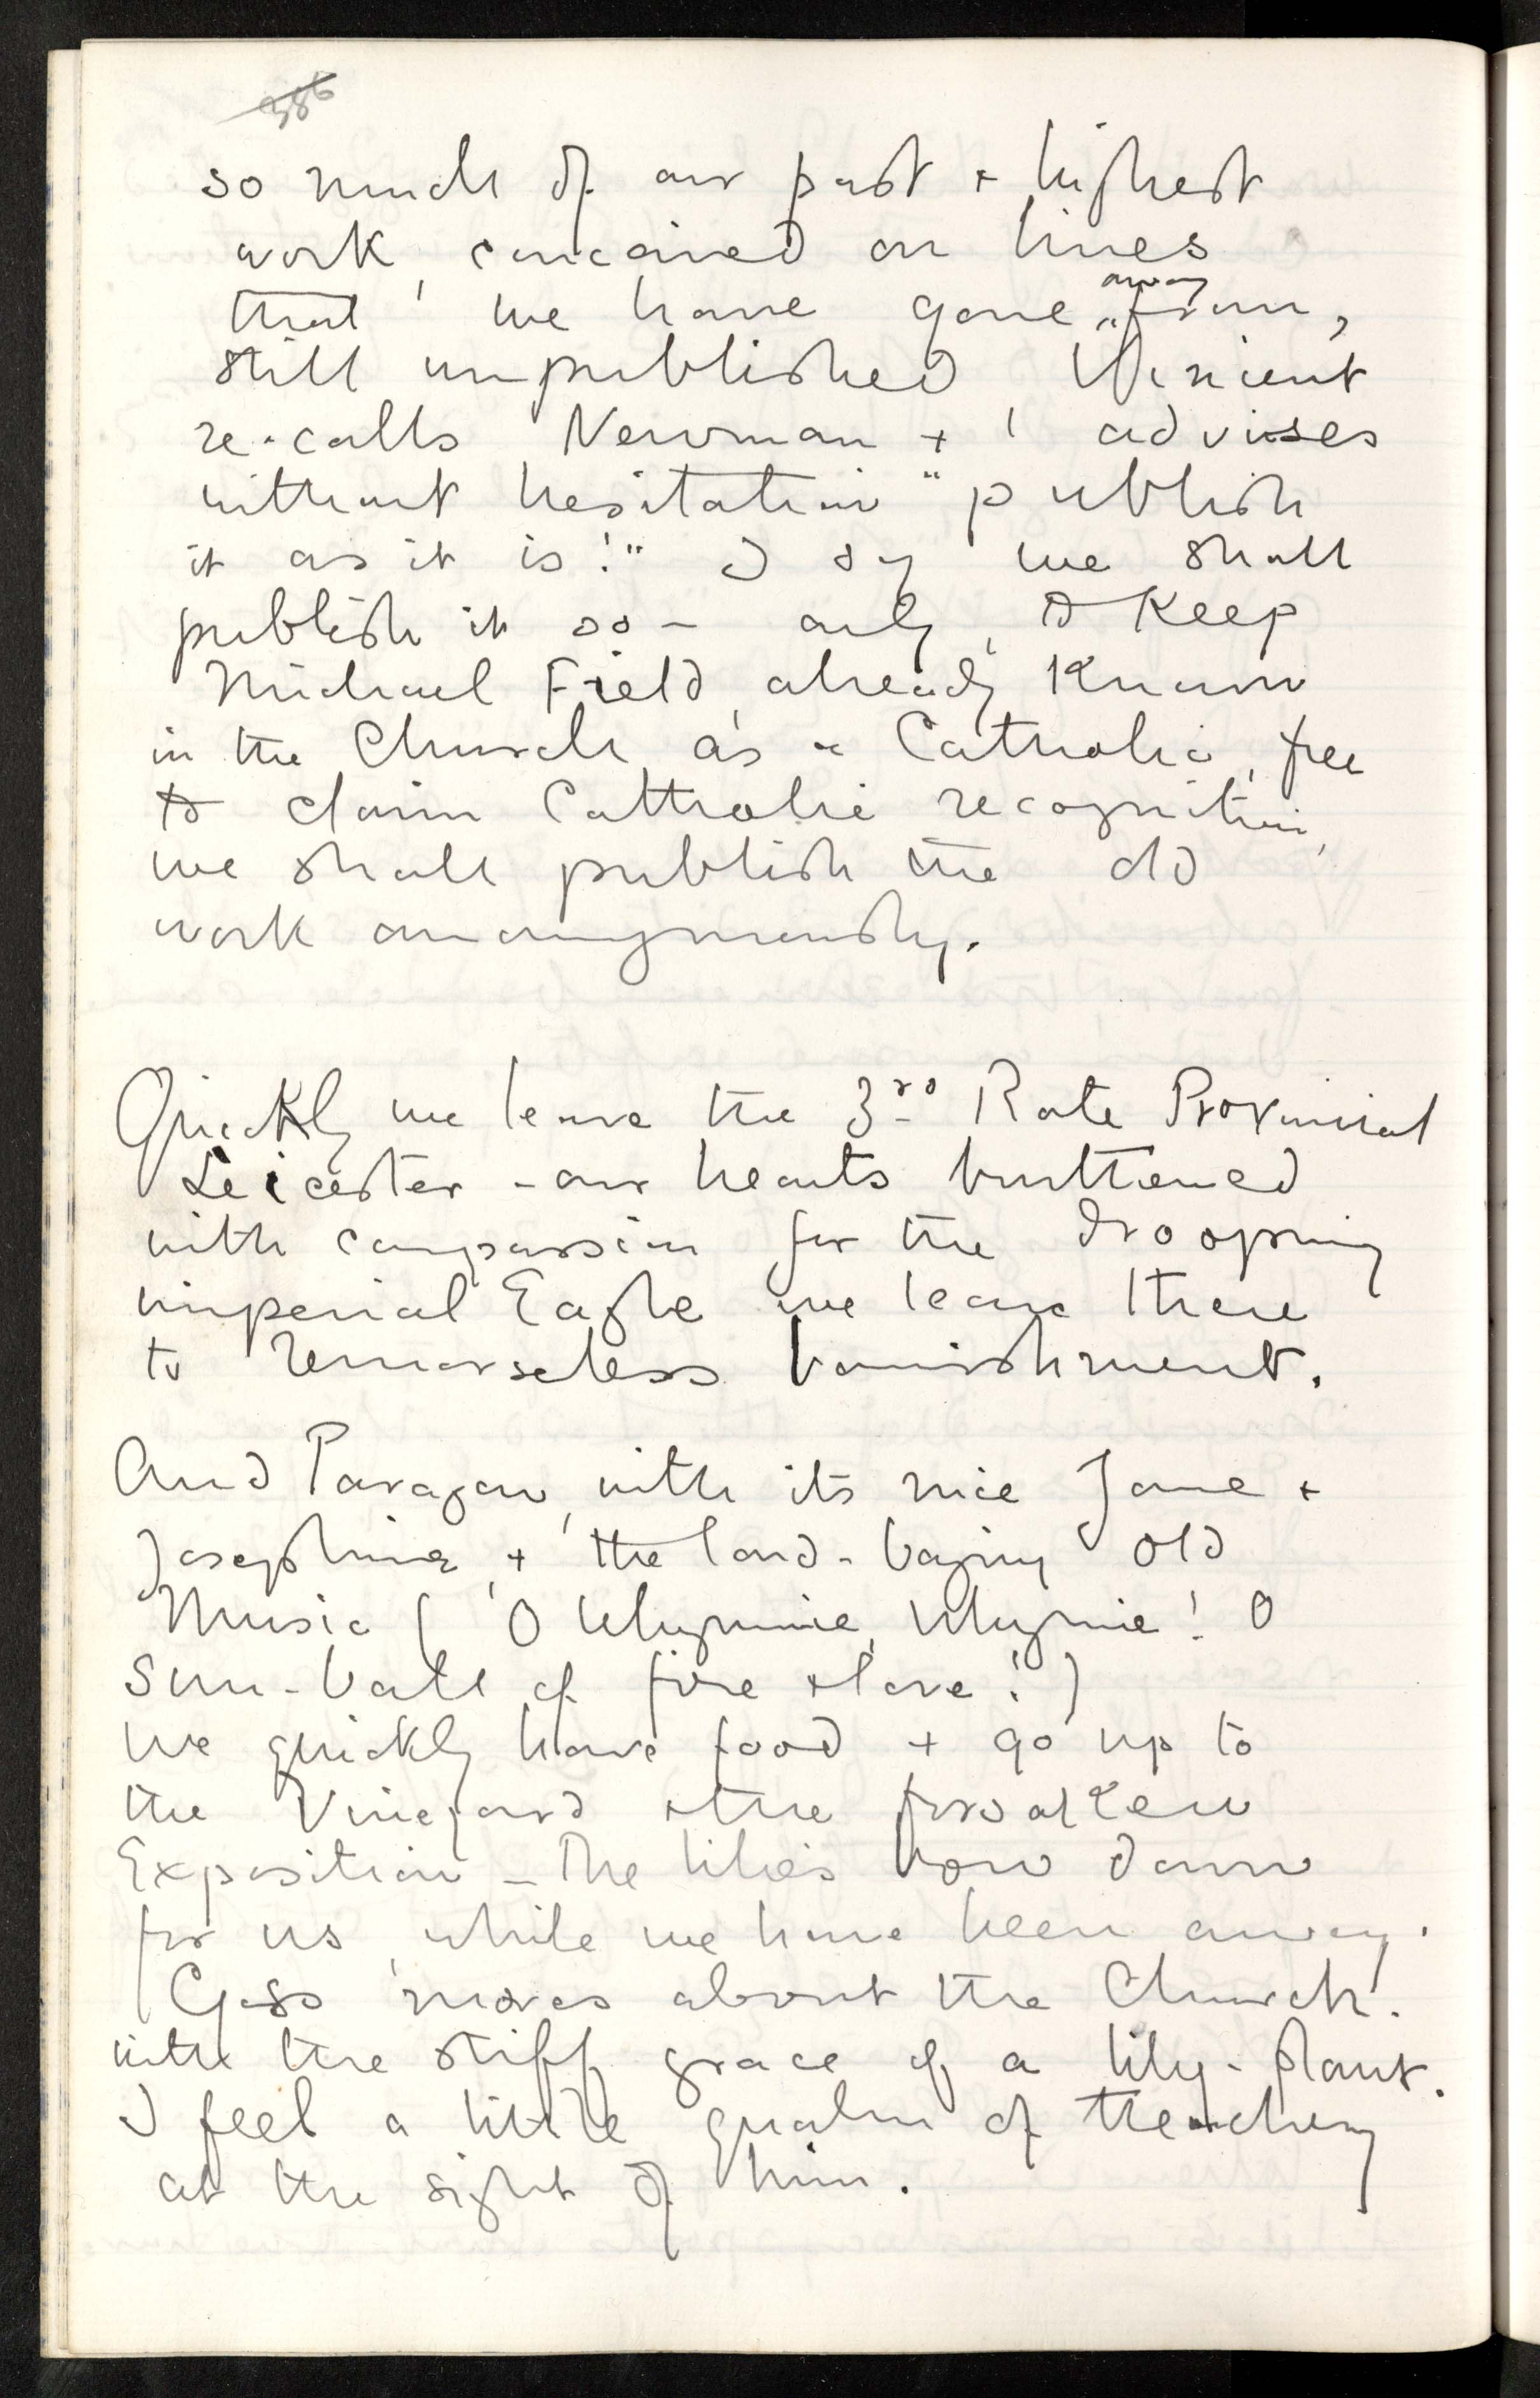 386
so much of our past + highest
work, conceived on lines
that we have gone away from,
still unpublished, Vincent
re-calls Newman + advises
without hesitation "publish
it as it is!" I say we shall
publish it so – only, to keep
Michael Field, already known
in the Church as a Catholic, free
to claim Catholic recognition,
we shall publish the old
work anonymously.
Quickly we leave the 3rd Rate Provincial
Leicester – our hearts
with compassion for the drooping
imperial Eagle we leave there
to remorseless banishment.
And Paragon, with its nice Jane +
Josephine, + the loud-baying old
Music ( O Whymie, Whymie! O
Sun-ball of fire + love!)
We quickly have food + go up to
the Vineyard + the forsaken
Exposition – The lilies bow down
for us, while we have been away.
Goss moves about the Church.
with the stiff grace of a lily-plant.
I feel a little qualm of treachery
at the sight of him.